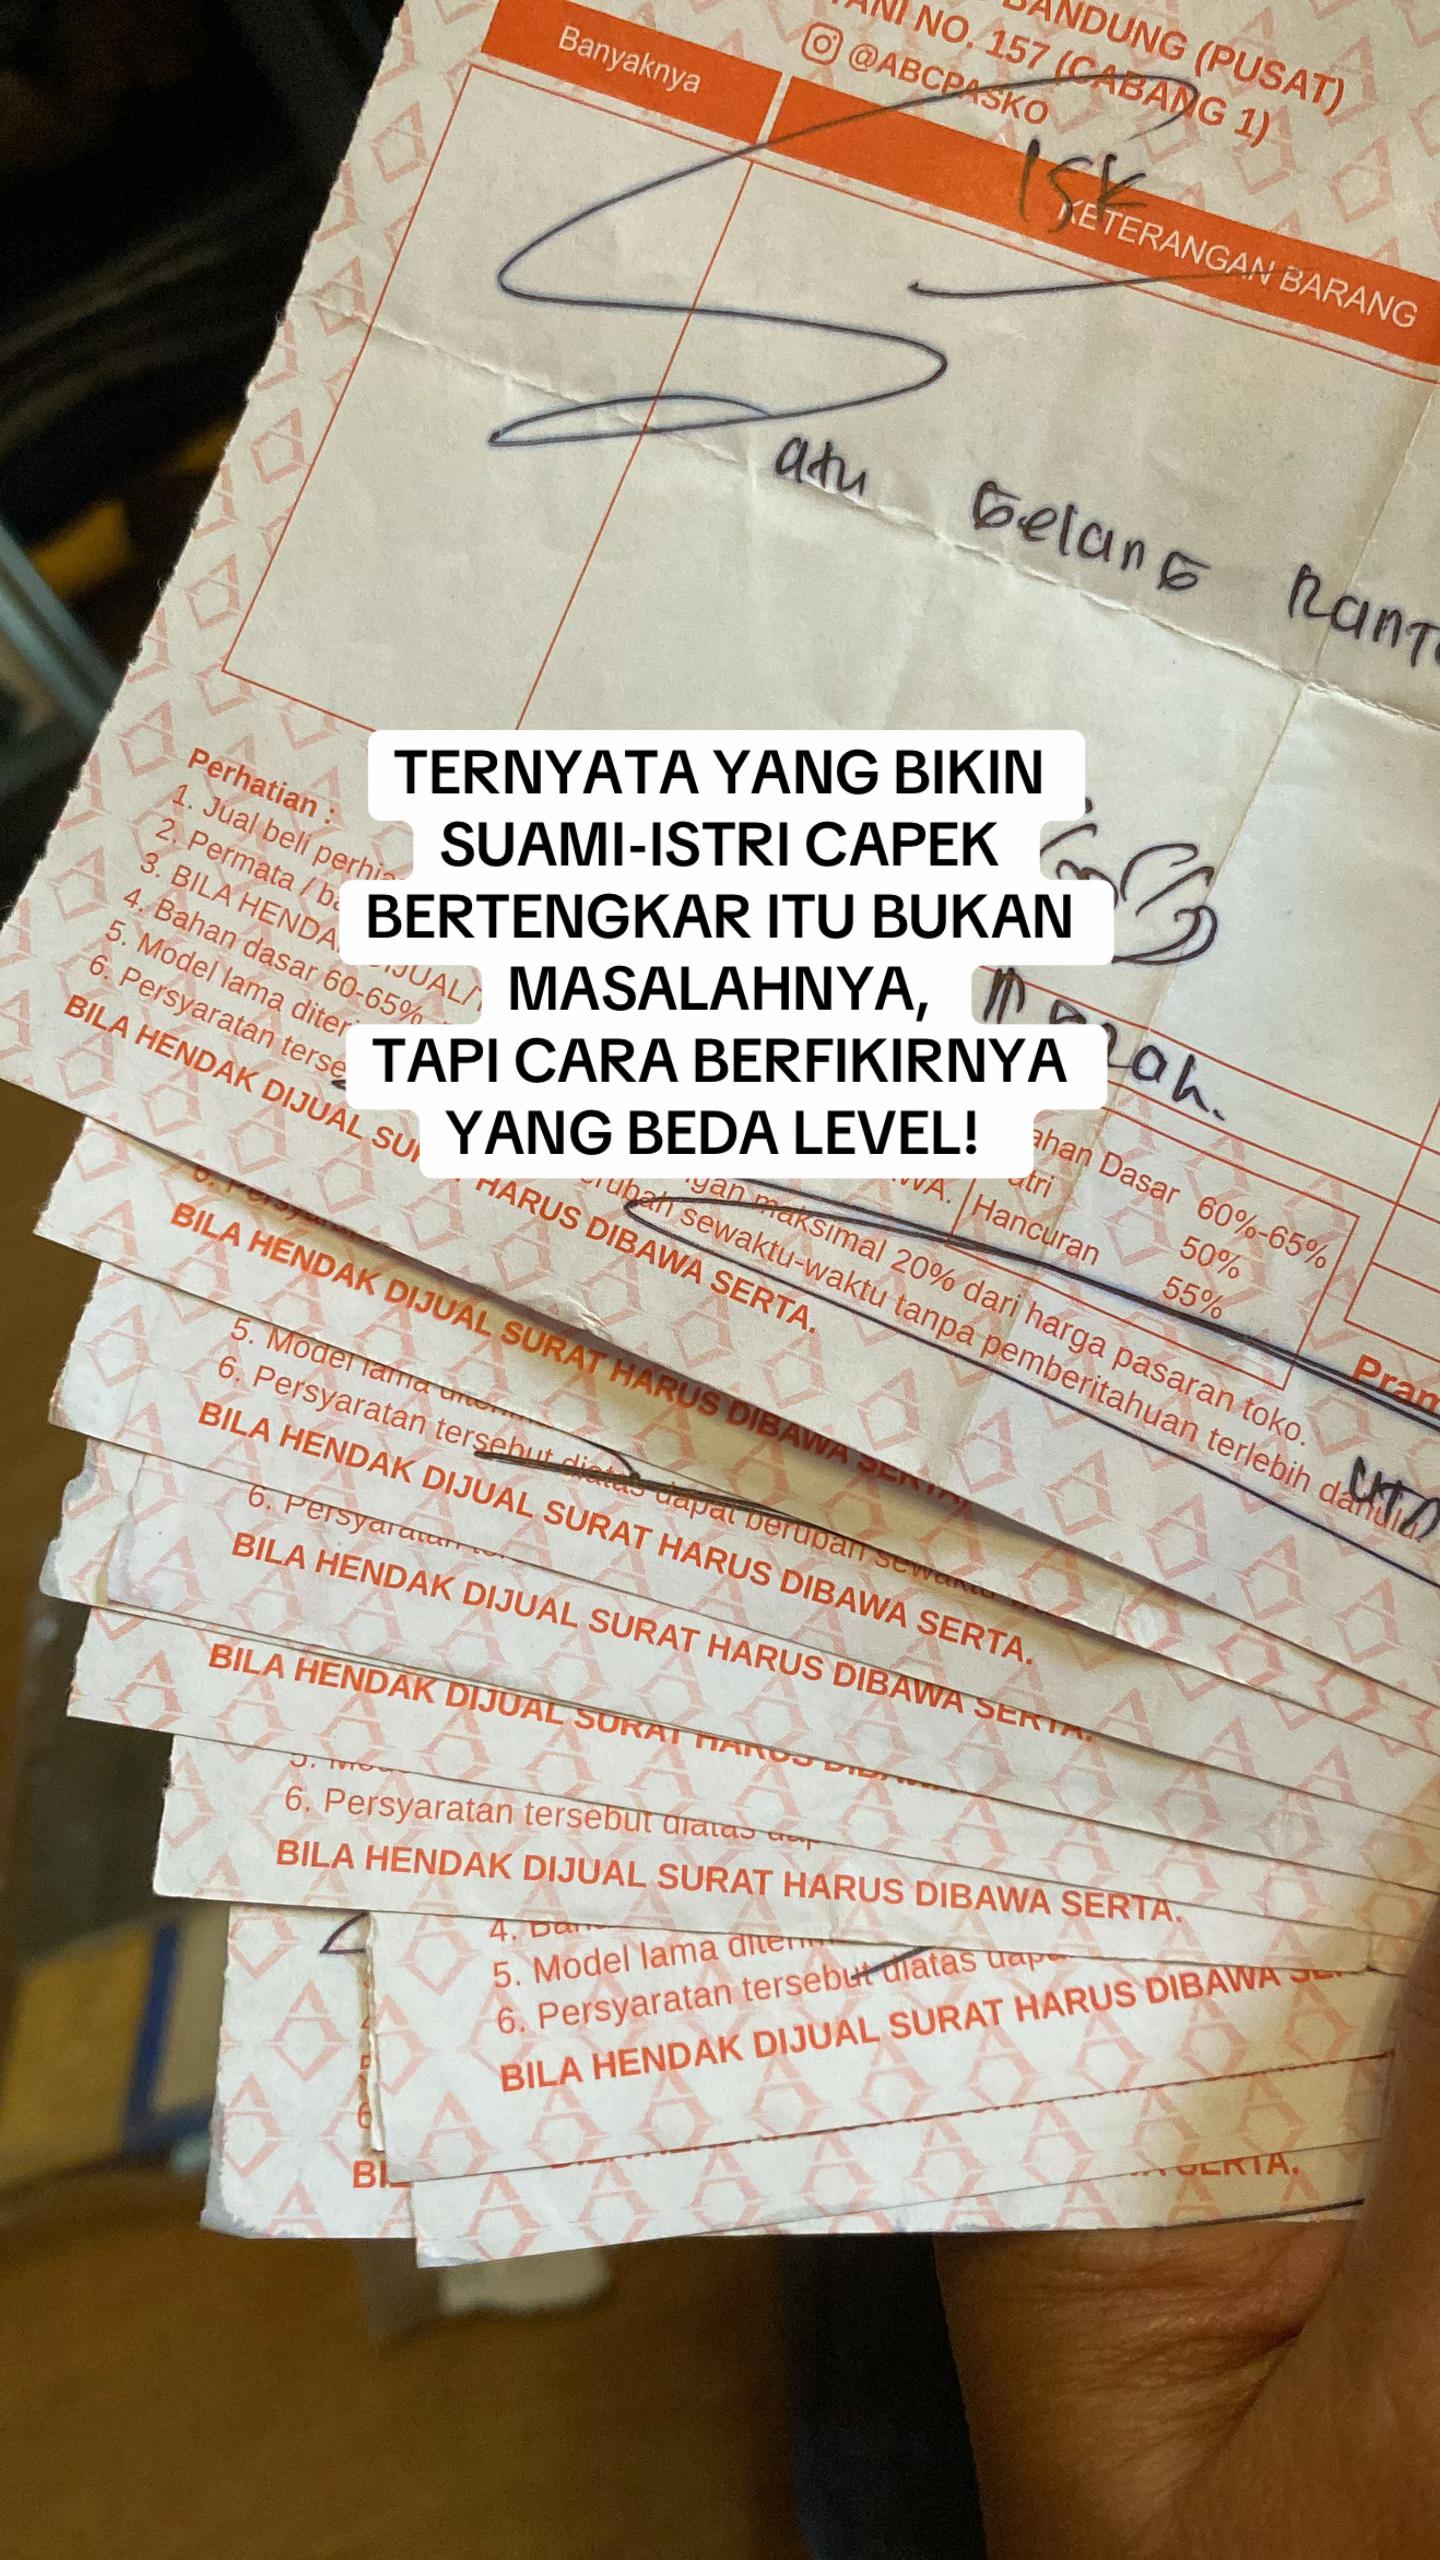 BANDUNG (PUSAT)
NO. 157 (CABANG 1)
@ABCPASKO
Banyaknya
KETERANGAN BARANG
15k
atu Gelang
TERNYATA YANG BIKIN
SUAMI-ISTRI CAPEK
BERTENGKAR ITU BUKAN
MASALAHNYA,
TAPI CARA BERFIKIRNYA
YANG BEDA LEVEL!
Perhatian :
1. Jual beli
2. Permata /
3. BILA
4. Bahan dasar 60-65%
5. Model lama
6. Persyaratan
BILA HENDAK DIJUAL HARUS DIBAWA SERTA.
maksimal 20% dari harga pasaran toko.
sewaktu-waktu tanpa pemberitahuan terlebih dahulu.
Dasar 60%-65%
50%
Hancuran 55%
BILA HENDAK DIJUAL SURAT HARUS DIBAWA SERTA.
5. Model lama
6. Persyaratan tersebut diatas dapat berubah sewaktu
BILA HENDAK DIJUAL SURAT HARUS DIBAWA SERTA.
6. Persyaratan
BILA HENDAK DIJUAL SURAT HARUS DIBAWA SERTA.
BILA HENDAK DIJUAL SURAT HARUS
6. Persyaratan tersebut diatas
BILA HENDAK DIJUAL SURAT HARUS DIBAWA SERTA.
4.
5. Model lama
6. Persyaratan tersebut diatas
BILA HENDAK DIJUAL SURAT HARUS DIBAWA
SERTA.